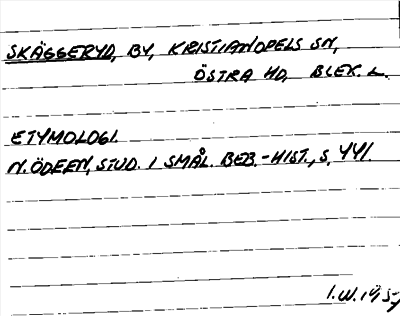 SKÄGGERYD, BY, KRISTIANOPELS SN,
ÖSTRA HD, BLEK. L.
ETYMOLOGI.
N. ÖDEEN, STUD. I SMÅL. BEB.-HIST., S. 441.
I.W.